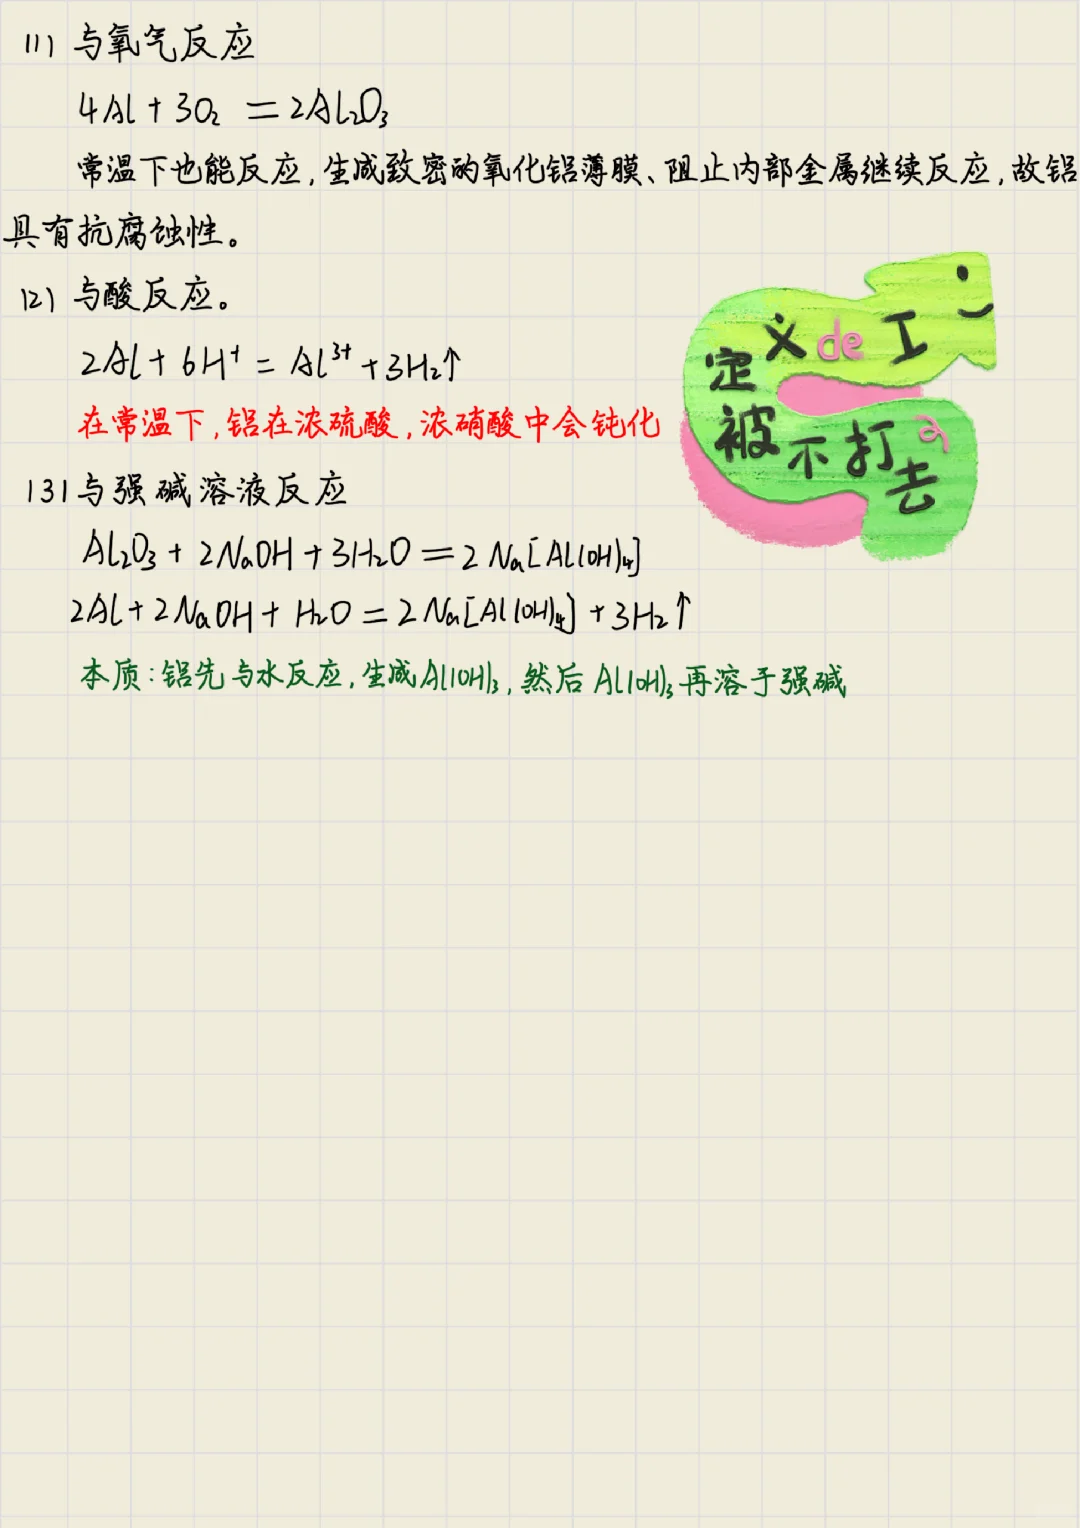 (1) 与氧气反应
4Al + 3O₂ = 2Al₂O₃
常温下也能反应,生成致密的氧化铝薄膜、阻止内部金属继续反应,故铝
具有抗腐蚀性。
(2) 与酸反应。
2Al + 6H⁺ = Al³⁺ + 3H₂↑
在常温下,铝在浓硫酸,浓硝酸中会钝化
(3) 与强碱溶液反应
Al₂O₃ + 2NaOH + 3H₂O = 2Na[Al(OH)₄]
2Al + 2NaOH + H₂O = 2Na[Al(OH)₄] + 3H₂↑
本质:铝先与水反应,生成Al(OH)₃,然后Al(OH)₃再溶于强碱
定义de工
被不打去